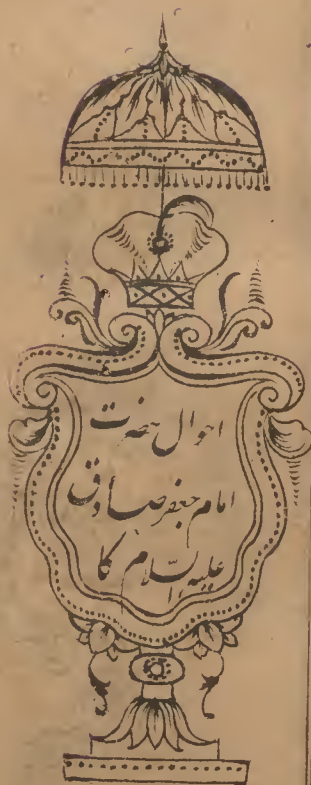 احوال حضرت
امام جعفر صادق
علیہ السلام کا